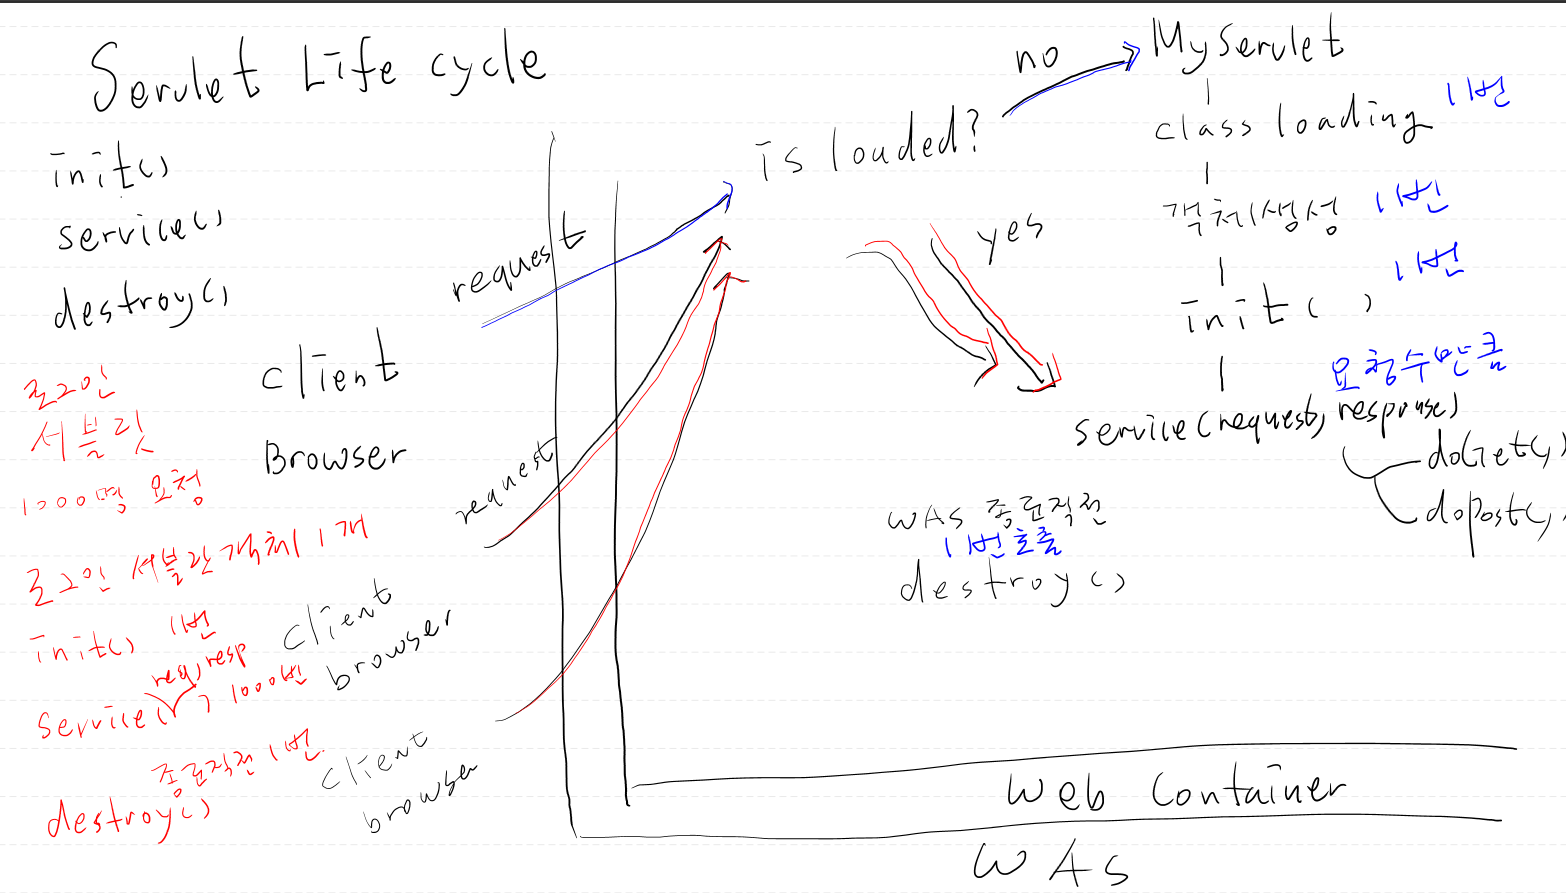 Servlet Life cycle
init()
service()
destroy()
client
Browser
로그인
서블릿
1000명 요청
로그인 서블릿 객체 1개
init() 1번
req, resp
service( ) 1000번
종료직전 1번
destroy()
client
browser
client
browser
request
request
is loaded?
no
yes
MyServlet
class loading 1번
객체생성 1번
init( ) 1번
요청수만큼
service(request, response)
doGet(,)
doPost(,)
WAS 종료직전
1번호출
destroy()
Web Container
WAS